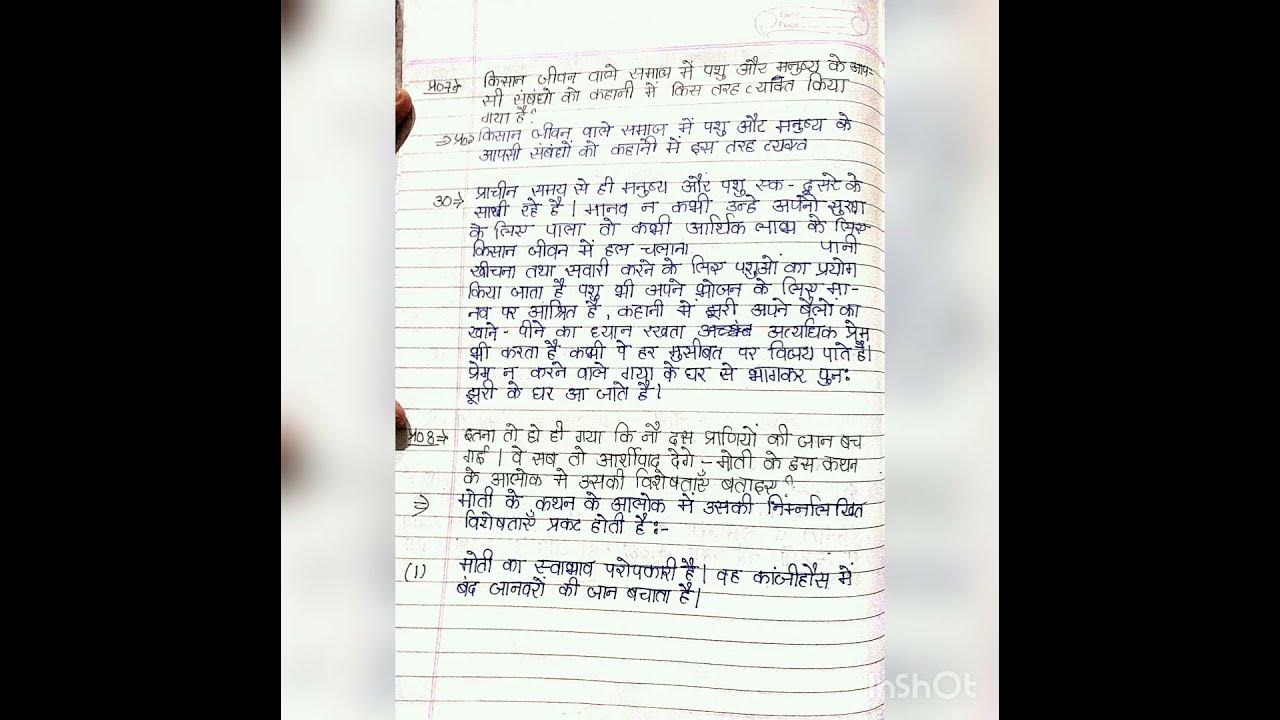 Date
Page
प्र०7→ किसान जीवन वाले समाज में पशु और मनुष्य के आप-
सी संबंधो को कहानी में किस तरह व्यक्ति किया
गया है?
किसान जीवन वाले समाज में पशु और मनुष्य के
आपसी संबंधों को कहानी में इस तरह व्यक्त
उ०→ प्राचीन समय से ही मनुष्य और पशु एक - दूसरे के
साथी रहे है। मानव न कभी उन्हे अपनी सुरक्षा
के लिए पाला तो कभी आर्थिक लाभ के लिए
किसान जीवन में हल चलाना पानी
खीचना तथा सवारी करने के लिए पशुओं का प्रयोग
किया जाता है पशु भी अपने भोजन के लिए मा-
नव पर आश्रित है, कहानी में झूरी अपने बैलों का
खाने - पीने का ध्यान रखता अत्यधिक प्रेम
भी करता है कभी पे हर मुसीबत पर विजय पाते है।
प्रेम न करने वाले गया के घर से भागकर पुनः
झूरी के घर आ जाते है।
प्र०8→ इतना तो हो ही गया कि नौ दस प्राणियों की जान बच
गई। वे सब तो आर्शीवाद देगे :- मोती के इस कथन
के आलोक मे उसकी विशेषताएँ बताइए?
⇒ मोती के कथन के आलोक में उसकी निम्नलिखित
विशेषताएँ प्रकट होती है:-
(1) मोती का स्वाभाव परोपकारी है। वह कांजीहौस में
बंद जानवरों की जान बचाता है।
InShOt